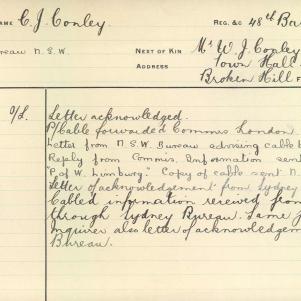 NAME C. J. Conley REG. &C 48th Ba
ureau N.S.W. NEXT OF KIN Mr W. J. Conley
ADDRESS Town Hall
Broken Hill F
O/L. Letter acknowledged.
P/Cable forwarded Commrs London
Letter from N.S.W. Bureau advising cable
Reply from Commrs. Information sent
"P. of W. Limburg." Copy of cable sent N.
Letter of acknowledgement from Sydney
Cabled information received from
through Sydney Bureau. Same
Inquirer also letter of acknowledgeme
Bureau.